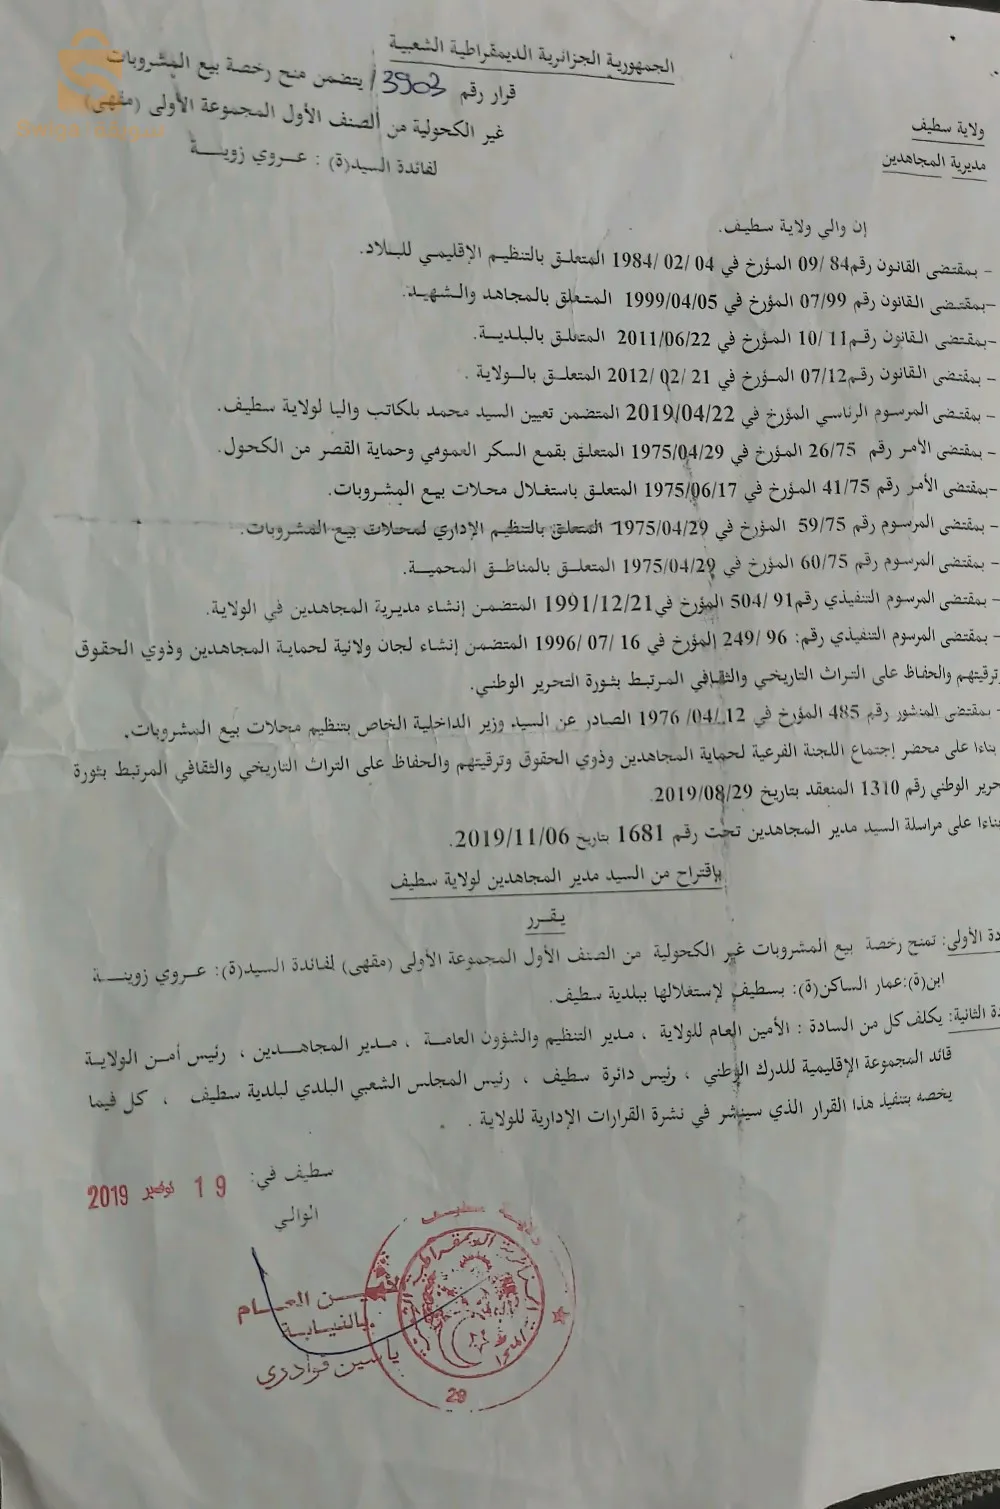 الجمهورية الجزائرية الديمقراطية الشعبية
ولاية سطيف
مديرية المجاهدين
قرار رقم 3903/ يتضمن منح رخصة بيع المشروبات
غير الكحولية من الصنف الأول المجموعة الأولى (مقهى)
لفائدة السيد(ة) : عروي زوينة
إن والي ولاية سطيف.
- بمقتضى القانون رقم84/ 09 المؤرخ في 04 /02 /1984 المتعلق بالتنظيم الإقليمي للبلاد.
-بمقتضى القانون رقم 07/99 المؤرخ في 1999/04/05 المتعلق بالمجاهد والشهيد.
-بمقتضى القانون رقم11 /10 المؤرخ في 2011/06/22 المتعلق بالبلدية.
- بمقتضى القانون رقم07/12 المؤرخ في 21 /02 /2012 المتعلق بالولاية .
- بمقتضى المرسوم الرئاسي المؤرخ في 2019/04/22 المتضمن تعيين السيد محمد بلكاتب واليا لولاية سطيف.
- بمقتضى الأمر رقم 26/75 المؤرخ في 1975/04/29 المتعلق بقمع السكر العمومي وحماية القصر من الكحول.
-بمقتضى الأمر رقم 41/75 المؤرخ في 1975/06/17 المتعلق باستغلال محلات بيع المشروبات.
- بمقتضى المرسوم رقم 59/75 المؤرخ في 1975/04/29 المتعلق بالتنظيم الإداري لمحلات بيع المشروبات.
- بمقتضى المرسوم رقم 60/75 المؤرخ في 1975/04/29 المتعلق بالمناطق المحمية.
- بمقتضى المرسوم التنفيذي رقم91 /504 المؤرخ في1991/12/21 المتضمن إنشاء مديرية المجاهدين في الولاية.
- بمقتضى المرسوم التنفيذي رقم: 96 /249 المؤرخ في 16 /07 /1996 المتضمن إنشاء لجان ولائية لحماية المجاهدين وذوي الحقوق
وترقيتهم والحفاظ على التراث التاريخي والثقافي المرتبط بثورة التحرير الوطني.
- بمقتضى المنشور رقم 485 المؤرخ في 12 /04/ 1976 الصادر عن السيد وزير الداخلية الخاص بتنظيم محلات بيع المشروبات.
بناءا على محضر إجتماع اللجنة الفرعية لحماية المجاهدين وذوي الحقوق وترقيتهم والحفاظ على التراث التاريخي والثقافي المرتبط بثورة
حرير الوطني رقم 1310 المنعقد بتاريخ 2019/08/29.
بناءا على مراسلة السيد مدير المجاهدين تحت رقم 1681 بتاريخ 2019/11/06.
بإقتراح من السيد مدير المجاهدين لولاية سطيف
يقرر
دة الأولى: تمنح رخصة بيع المشروبات غير الكحولية من الصنف الأول المجموعة الأولى (مقهى) لفائدة السيد(ة): عروي زوينة
ابن(ة):عمار الساكن(ة): بسطيف لإستغلالها ببلدية سطيف.
دة الثانية: يكلف كل من السادة : الأمين العام للولاية ، مدير التنظيم والشؤون العامة ، مدير المجاهدين ، رئيس أمن الولاية
قائد المجموعة الإقليمية للدرك الوطني ، رئيس دائرة سطيف ، رئيس المجلس الشعبي البلدي لبلدية سطيف ، كل فيما
يخصه بتنفيذ هذا القرار الذي سينشر في نشرة القرارات الإدارية للولاية .
سطيف في: 19 نوفمبر 2019
الوالي
الأمين العام
بالنيابة
ياسين قوادري
ولاية سطيف
29